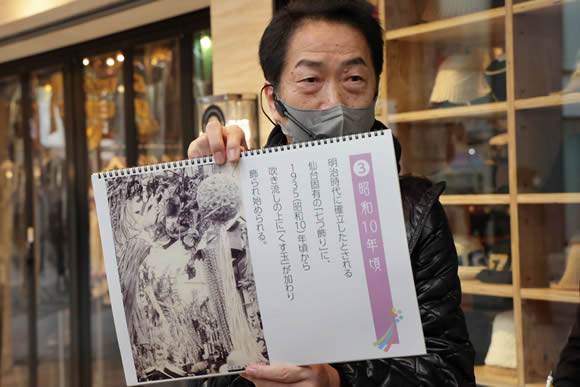 ③ 昭和10年頃
明治時代に確立したとされる
仙台固有の「七つ飾り」に、
1935（昭和10）年頃から
吹き流しの上に「くす玉」が加わり
飾られ始められる。